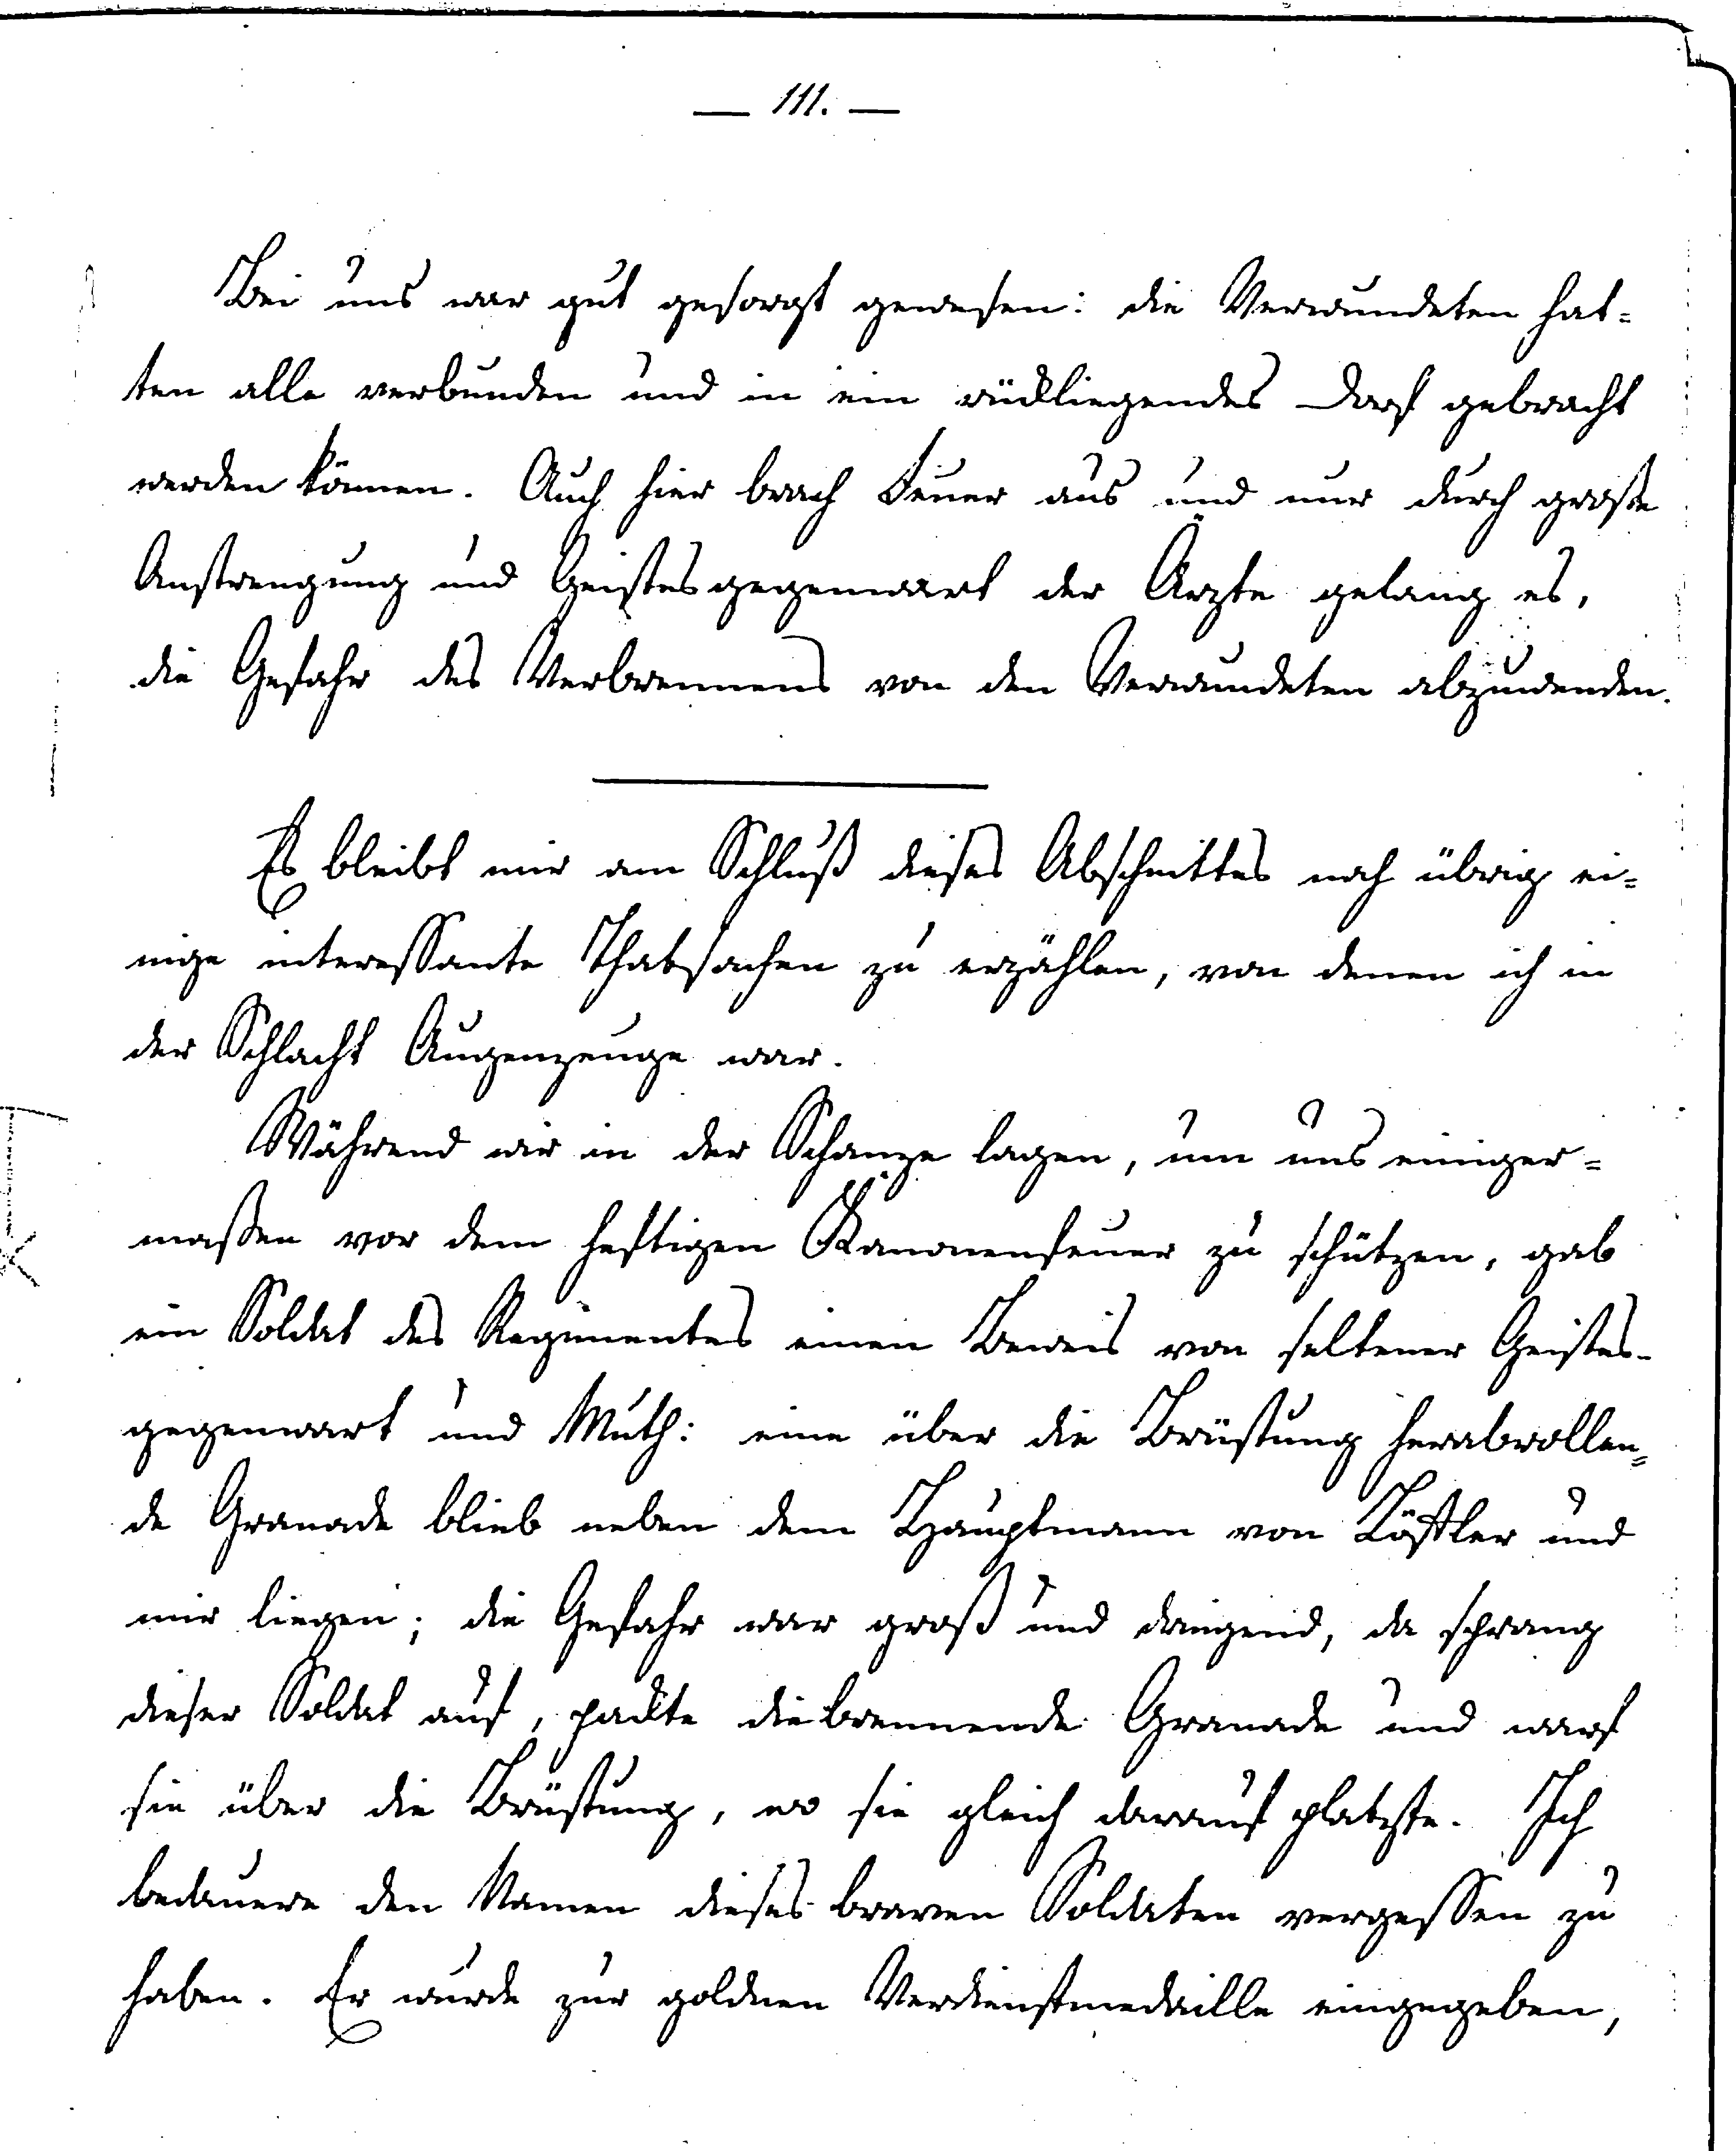 — 111. —
Bei uns war gut gesorgt gewesen: die Verwundeten hat=
ten alle verbunden und in ein rückliegendes Dorf gebracht
werden können. Auch hier brach Feuer aus und nur durch große
Anstrengung und Geistesgegenwart der Ärzte gelang es,
die Gefahr des Verbrennens von den Verwundeten abzuwenden.
Es bleibt mir am Schluß dieses Abschnittes noch übrig ei=
nige interessante Thatsachen zu erzählen, von denen ich in
der Schlacht Augenzeuge war.
Während wir in der Schanze lagen, um uns einiger=
maßen vor dem heftigen Kanonenfeuer zu schützen, gab
ein Soldat des Regimentes einen Beweis von seltener Geistes-
gegenwart und Muth: eine über die Brüstung herabrollen=
de Granade blieb neben dem Hauptmann von und
mir liegen; die Gefahr war groß und dringend, da sprang
dieser Soldat auf, packte die brennende Granade und warf
sie über die Brüstung, wo sie gleich darauf platzte. Ich
bedauere den Namen dieses braven Soldaten vergessen zu
haben. Er wurde zur goldnen Verdienstmedaille eingegeben,